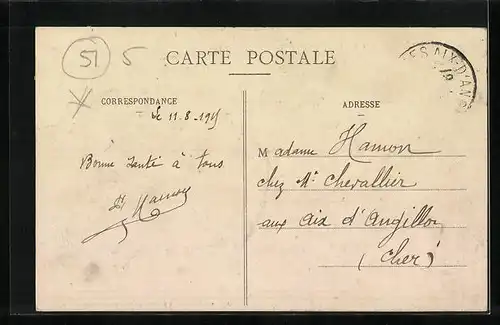 51 5
CARTE POSTALE
CORRESPONDANCE
ADRESSE
le 11.8.1915
Bonne santé à tous
Hamon
Madame Hamon
chez Mr Chevallier
aux Aix d'Angillon
(Cher)
LES AIX-D'ANG